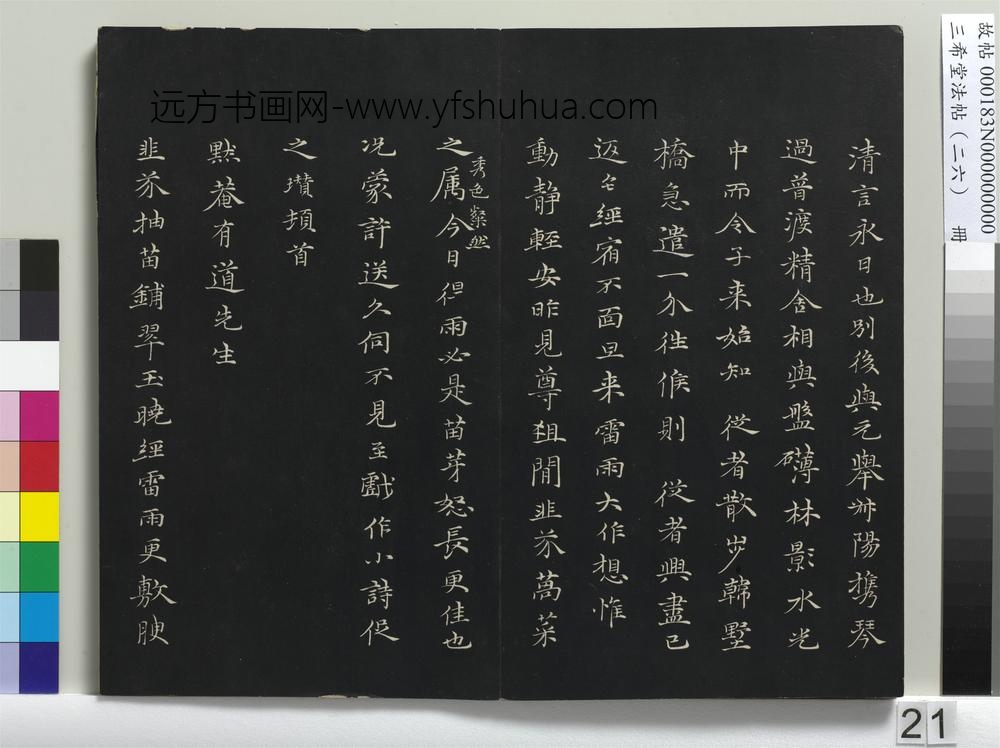 清言永日也別後與元舉艸陽攜琴
過普渡精舍相與盤礴林影水光
中而令子来始知 從者散步韓墅
橋急遣一介往候則 從者興盡已
返乞經宿不面旦来雷雨大作想惟
動靜輕安昨見尊俎閒韭芥萵菜
之属今日得雨必是苗芽怒長更佳也
秀色粲然
况蒙許送久伺不見至戲作小詩促
之瓚頓首
黙菴有道先生
韭芥抽苗鋪翠玉曉經雷雨更敷腴
远方书画网-www.yfshuhua.com
故帖 000183N000000000
三希堂法帖(二六) 冊
21